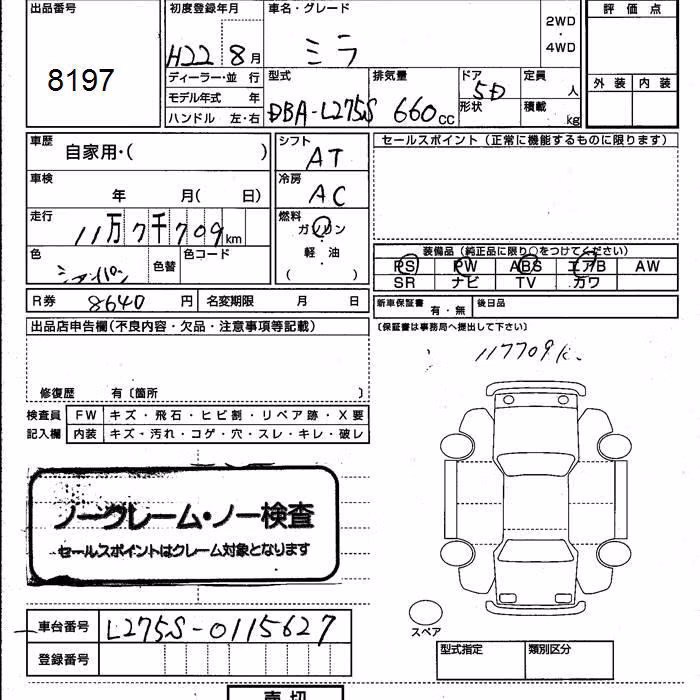 出品番号 初度登録年月 車名・グレード 評価点
8197 H22 8月 ミラ 2WD・4WD
ディーラー・並行 型式 排気量 ドア 定員 外装 内装
モデル年式 年 DBA-L275S 660cc 5D 人
ハンドル 左・右 形状 積載 kg
車歴 シフト セールスポイント(正常に機能するものに限ります)
自家用・( ) AT
車検 冷房
年 月( 日) AC
走行 燃料
11万7千709km ガソリン
色 色替 色コード 軽・油 装備品(純正品に限り○をつけてください)
シャンパン ( ) PS PW ABS エアB AW
SR ナビ TV カワ
R券 8640円 名変期限 月 日 新車保証書 有・無 後日品
出品店申告欄(不良内容・欠品・注意事項等記載) (保証書は事務局へ提出して下さい)
117709k
修復歴 有〔箇所 〕
検査員 FW キズ・飛石・ヒビ割・リペア跡・X要
記入欄 内装 キズ・汚れ・コゲ・穴・スレ・キレ・破レ
ノークレーム・ノー検査
セールスポイントはクレーム対象となります
車台番号 L275S-0115627 スペア
登録番号 型式指定 類別区分
売切